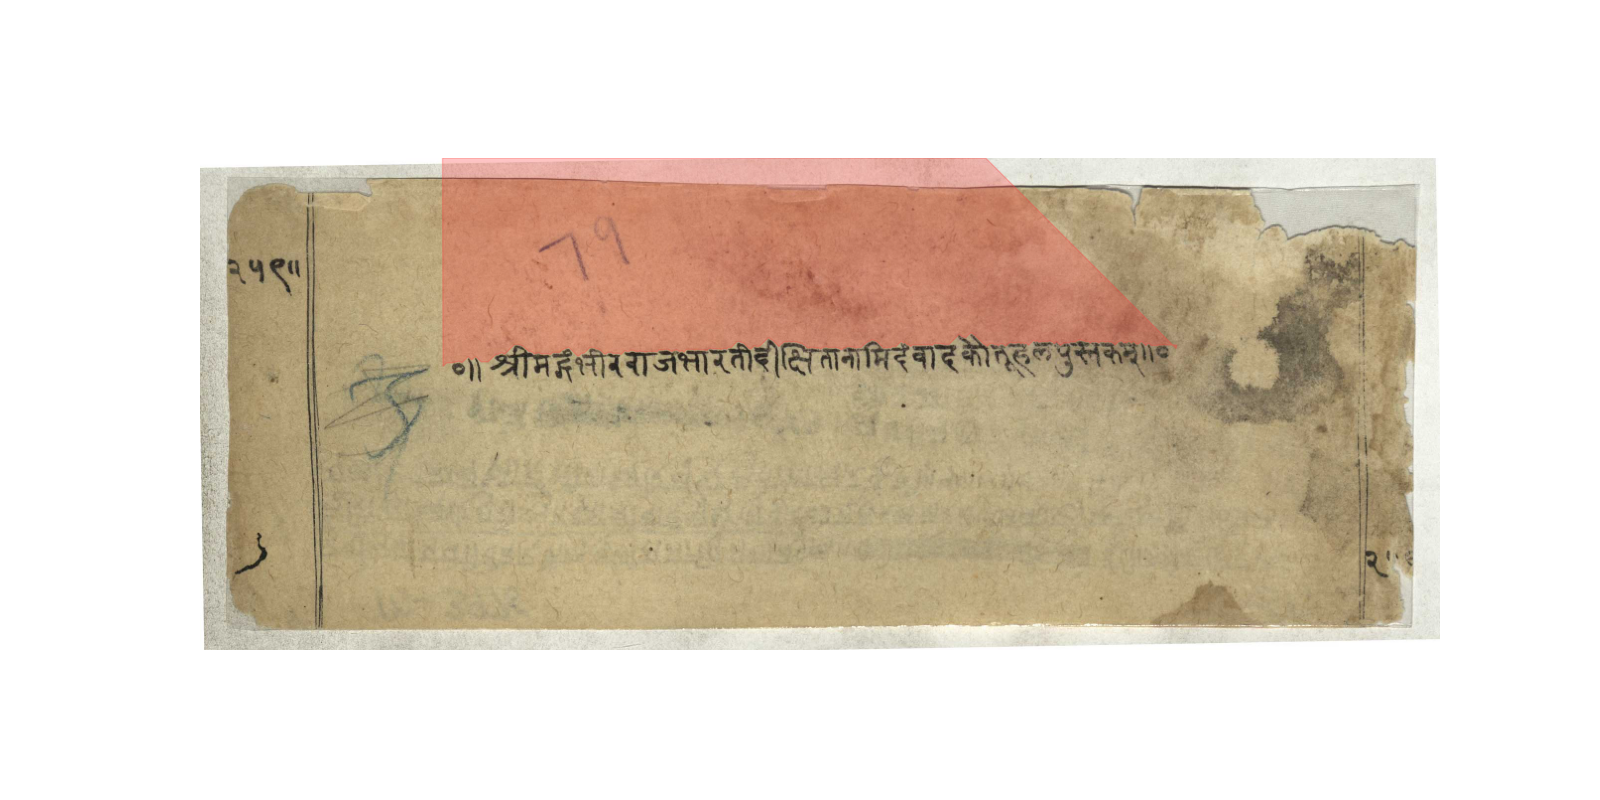 79
२५९॥
०॥ श्रीमद्गंभीरराजभारतीदीक्षितानामिदं वादकौतूहलपुस्तकम्॥०